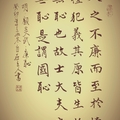 人之不廉而至於悖
禮犯義其原皆生於
無恥也故士大夫之
無恥是謂國恥
顧炎武廉恥